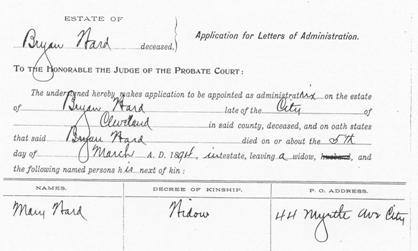 ESTATE OF
Bryan Ward deceased.
Application for Letters of Administration.
TO THE HONORABLE THE JUDGE OF THE PROBATE COURT:
The undersigned hereby makes application to be appointed as administratrix on the estate
of Bryan Ward late of the City of
Cleveland in said county, deceased, and on oath states
that said Bryan Ward died on or about the 5th
day of March A. D. 1894, intestate, leaving a widow, husband, and
the following named persons his next of kin:
NAMES. DEGREE OF KINSHIP. P. O. ADDRESS.
Mary Ward Widow 44 Myrtle Ave City